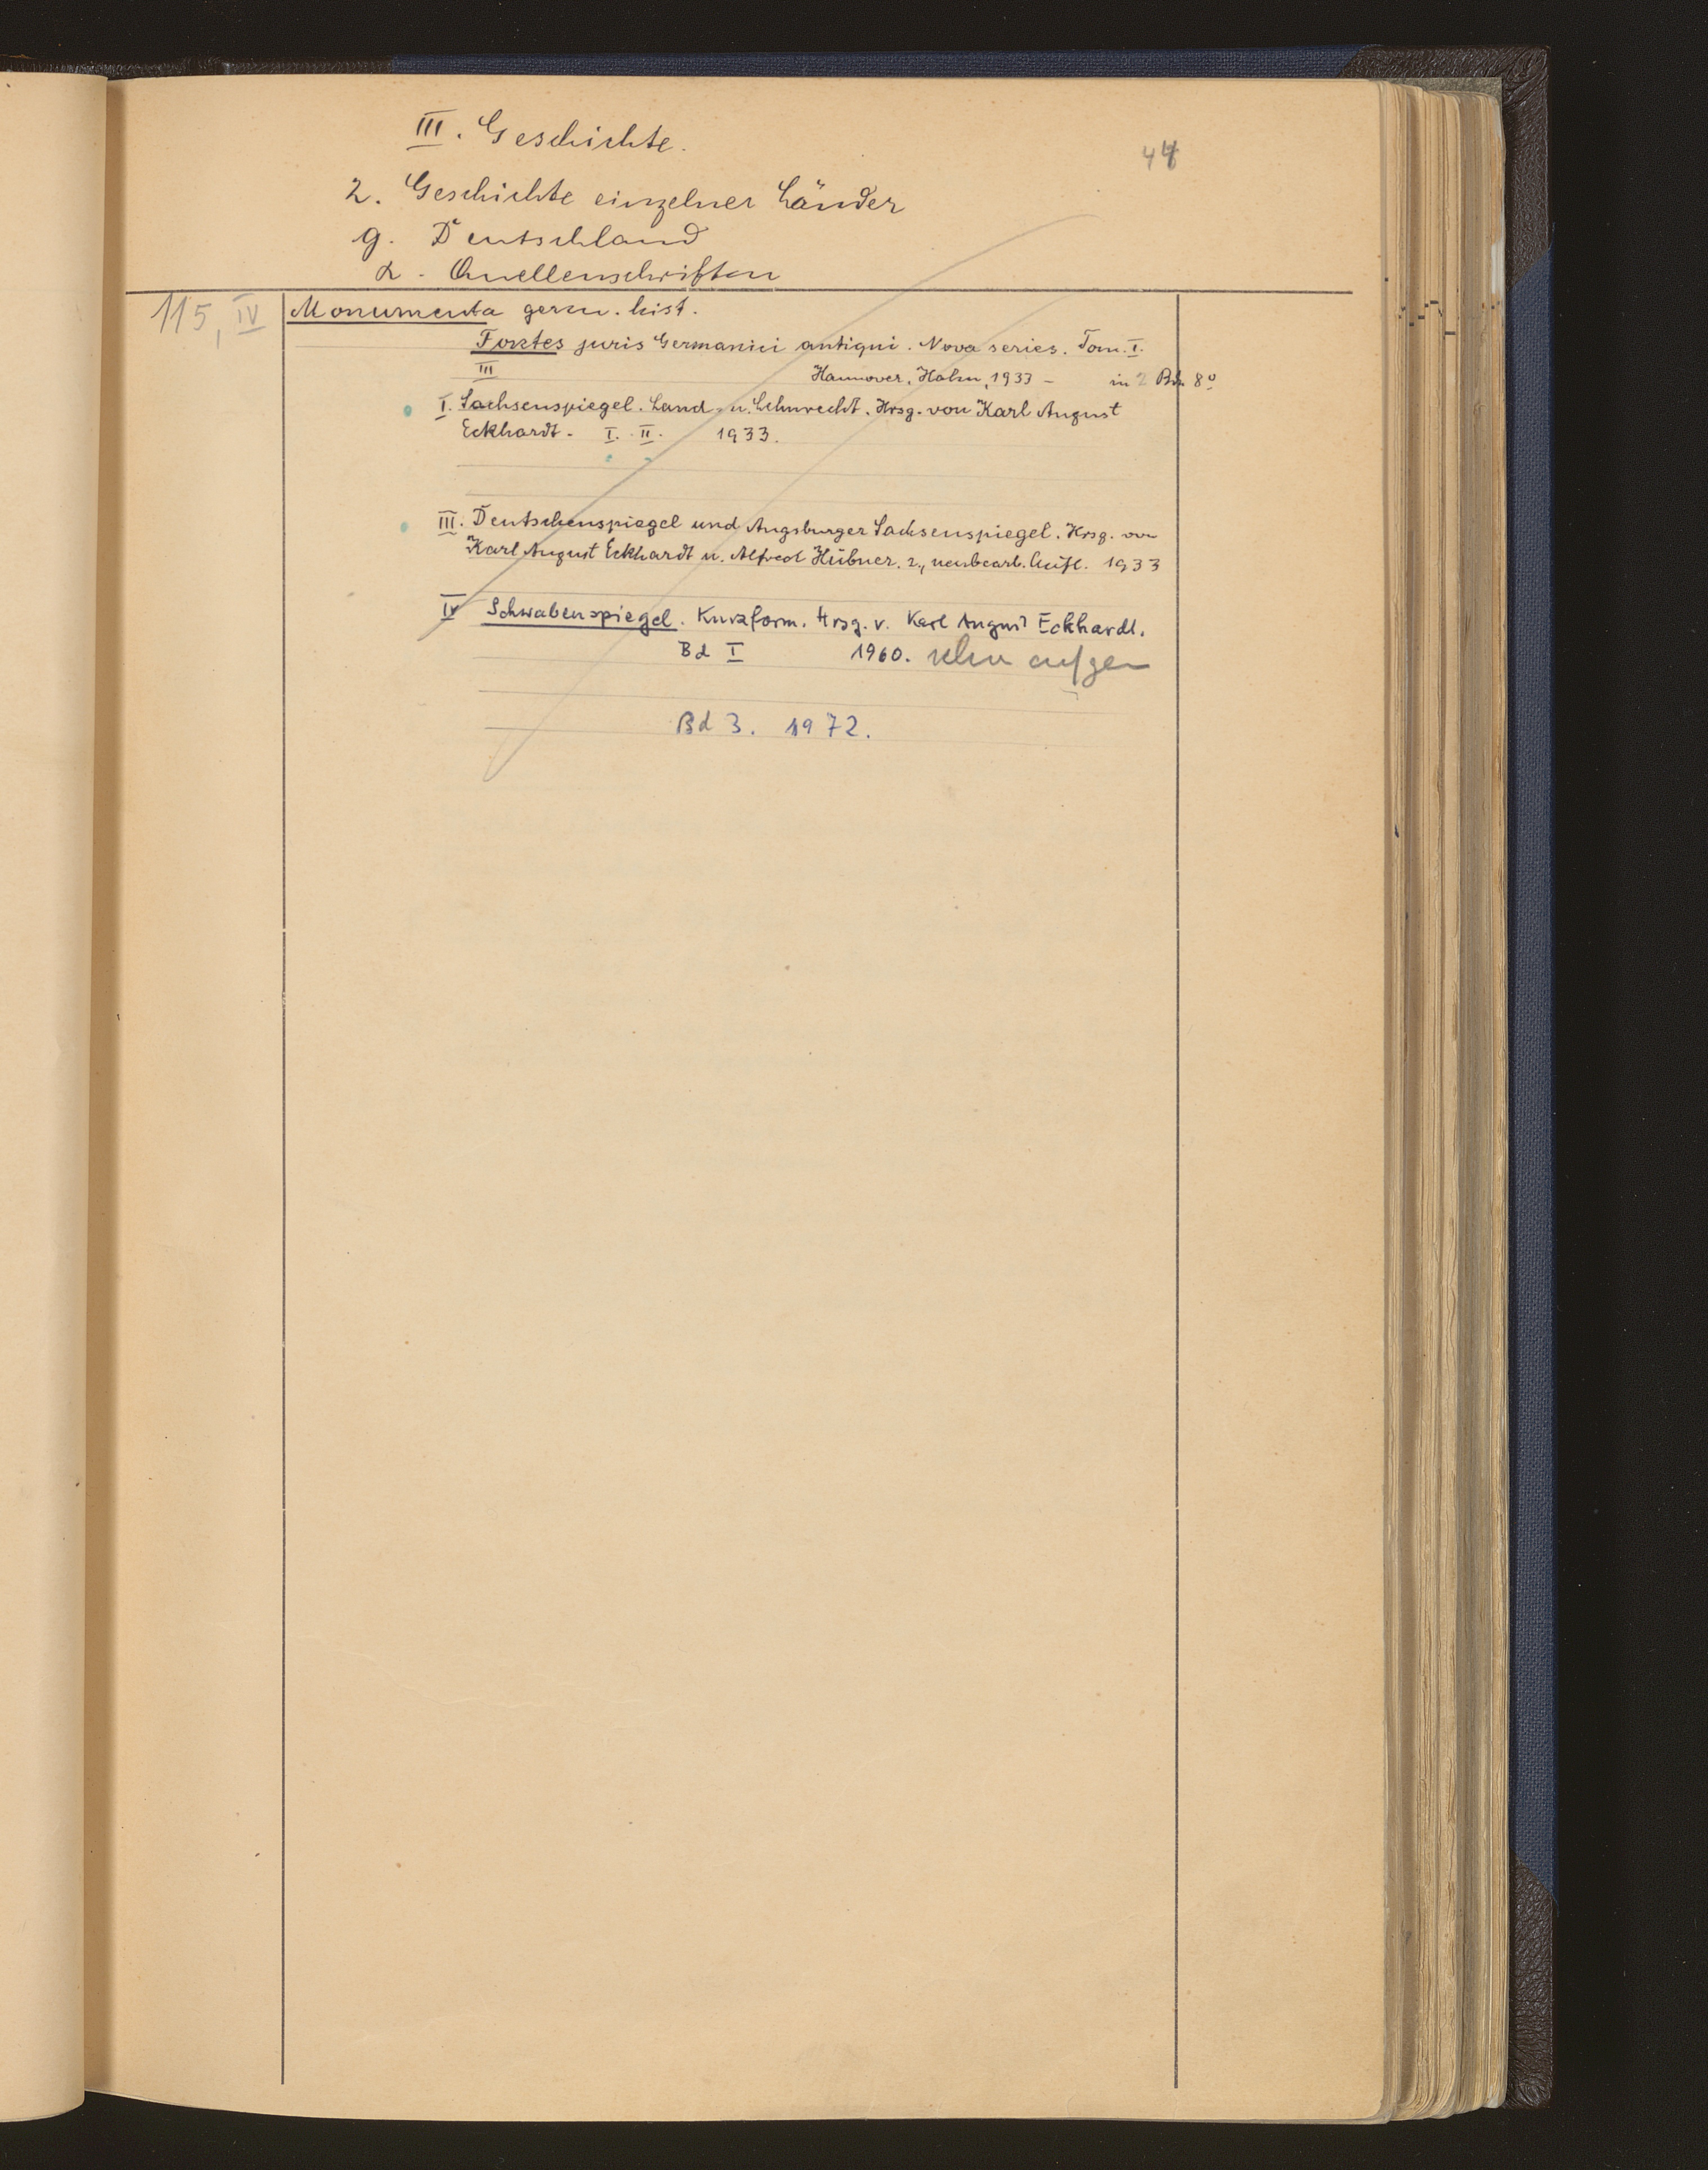 III. Geschichte.
44
2. Geschichte einzelner Länder
g. Deutschland
α. Quellenschriften
115, IV
Monumenta germ. hist.
Fontes juris Germanici antiqui. Nova series. Tom. I.
III
Hannover, Hahn, 1933 – in 2 Bdn 8º
I. Sachsenspiegel. Land- u. Lehnrecht. Hrsg. von Karl August
Eckhardt. I. II. 1933.
III. Deutschenspiegel und Augsburger Sachsenspiegel. Hrsg. von
Karl August Eckhardt u. Alfred Hübner. 2., neubearb. Aufl. 1933
IV Schwabenspiegel. Kurzform. Hrsg. v. Karl August Eckhardt.
Bd I 1960.
Bd 3. 1972.